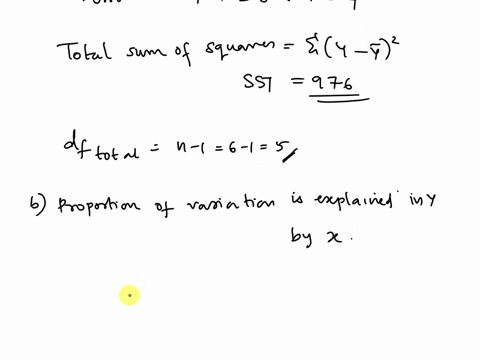 Total sum of squares = Σ(Y - Ȳ)²
SST = 976
df total = n-1 = 6-1 = 5
b) Proportion of variation is explained in Y
by x.